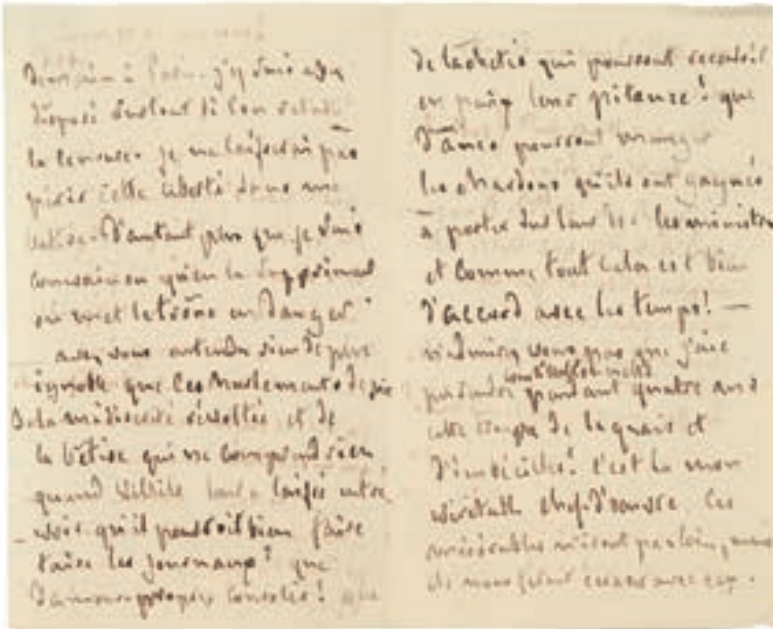 Demain à j'y suis
disposé surtout si l'on
la je ne laisserai pas
périr cette liberté sans me
D'autant plus que je suis
convaincu qu'en la supprimant
on met le trône en danger.
avez vous entendu rien de plus
ignoble que ces hurlements de joie
de la médiocrité révoltée et de
la bêtise qui ne comprend rien
quand Villèle leur a laissé entre
-voir qu'il pourroit bien faire
taire les journaux? que
D'amours propres consolés!
de lachetés qui pourront
en paix leur pitance! que
D'ânes pourront manger
les chardons qu'ils ont gagnés
à porter sur leur les ministres
et comme tout cela est bien
D'accord avec les temps! —
n'admirez vous pas que j'aie
pendant quatre ans
cette troupe de laquais et
D'imbécilles! c'est là mon
véritable chef-d'œuvre. Ces
misérables n'iront pas loin, mais
ils nous feront avec eux.